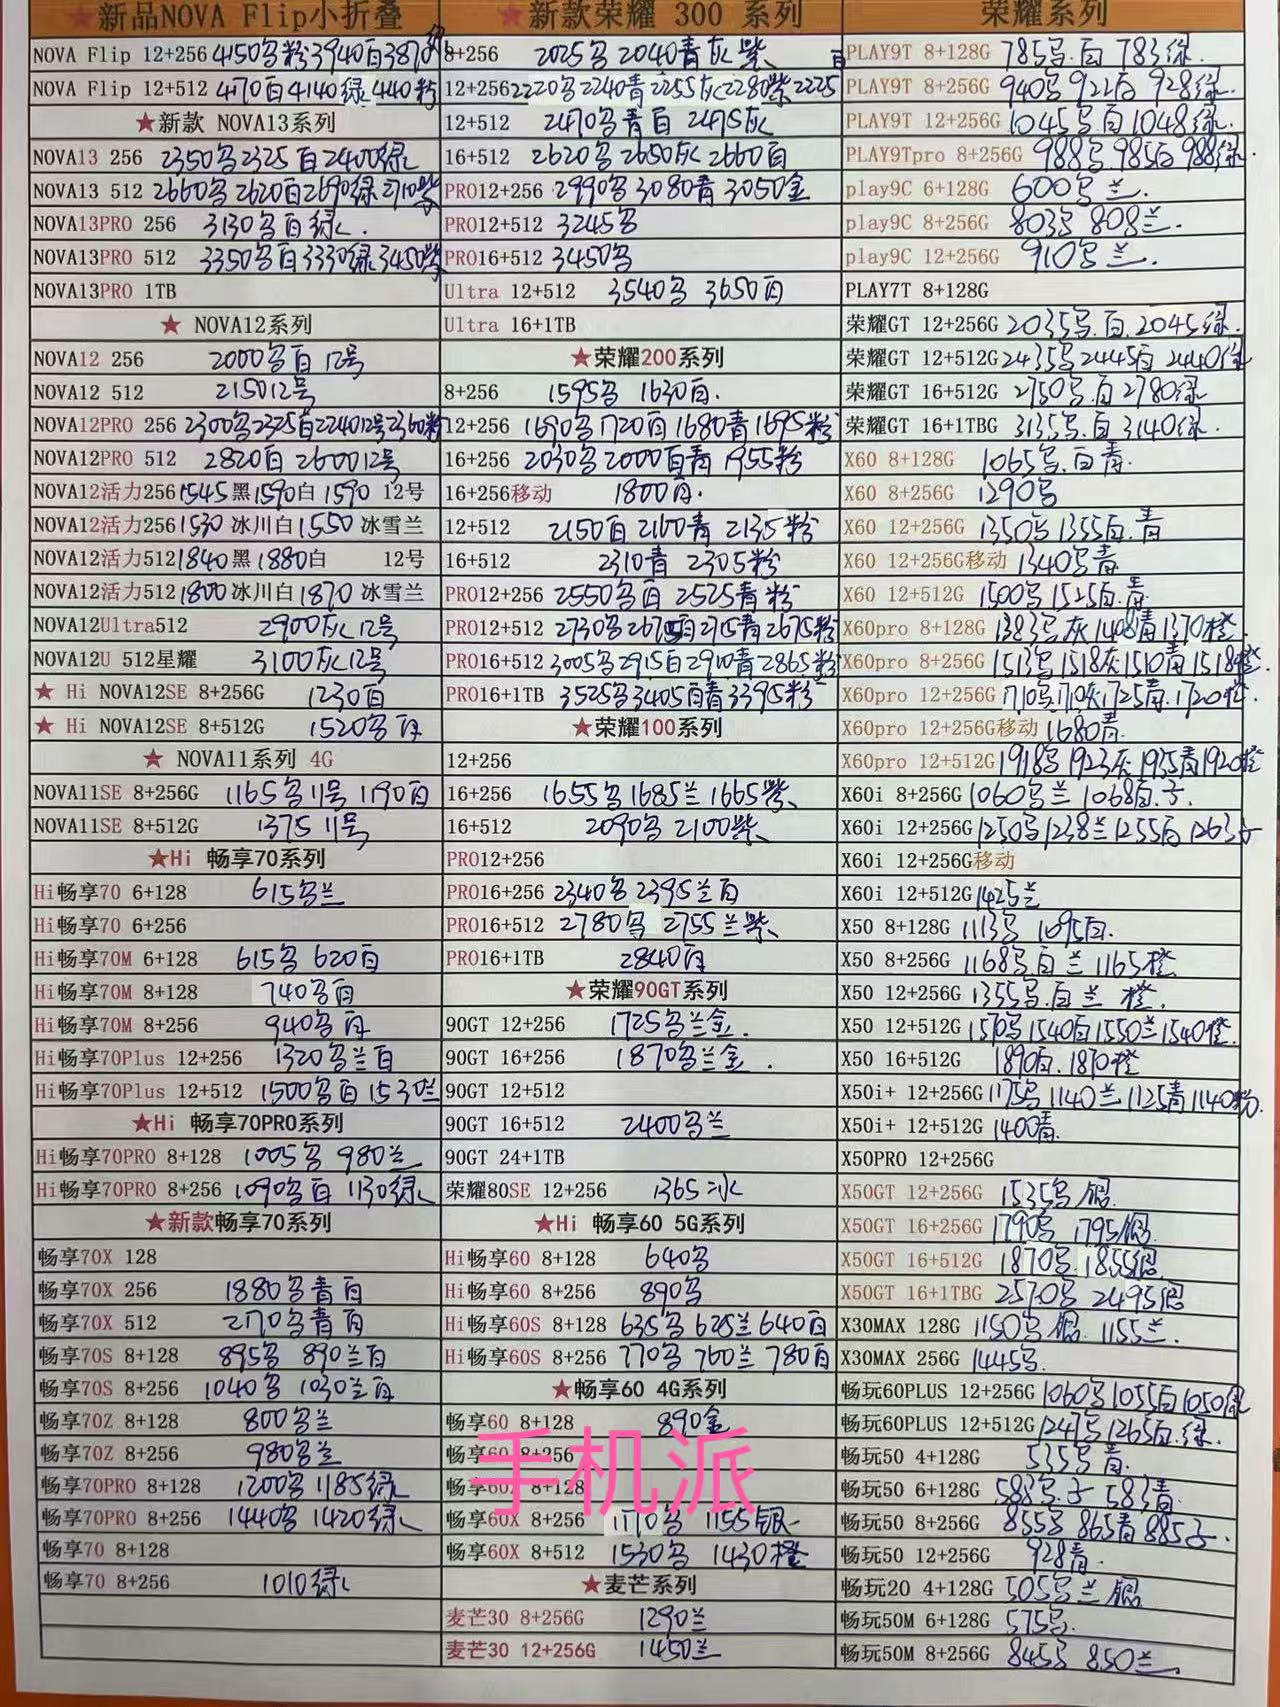 ★新品NOVA Flip小折叠
NOVA Flip 12+256 4150乌粉3940白3870
NOVA Flip 12+512 4170白4140绿4140粉
★新款 NOVA13系列
NOVA13 256 2350乌2325白2400绿
NOVA13 512 2660乌2620白2690绿2710紫
NOVA13PRO 256 3130乌白绿.
NOVA13PRO 512 3350乌白3330绿3450紫
NOVA13PRO 1TB
★ NOVA12系列
NOVA12 256 2000乌白12号
NOVA12 512 215012号
NOVA12PRO 256 2300乌2325白224012号2360粉
NOVA12PRO 512 2820白260012号
NOVA12活力256 1545黑1590白1590 12号
NOVA12活力256 1530冰川白1550冰雪兰
NOVA12活力512 1840黑1880白 12号
NOVA12活力512 1800冰川白1870冰雪兰
NOVA12Ultra512 2900灰12号
NOVA12U 512星耀 3100灰12号
★ Hi NOVA12SE 8+256G 1230白
★ Hi NOVA12SE 8+512G 1520乌白
★ NOVA11系列 4G
NOVA11SE 8+256G 1165乌11号 1190白
NOVA11SE 8+512G 1375 11号
★Hi 畅享70系列
Hi畅享70 6+128 615乌兰
Hi畅享70 6+256
Hi畅享70M 6+128 615乌 620白
Hi畅享70M 8+128 740乌白
Hi畅享70M 8+256 940乌白
Hi畅享70Plus 12+256 1320乌兰白
Hi畅享70Plus 12+512 1500乌白1530兰
★Hi 畅享70PRO系列
Hi畅享70PRO 8+128 1005乌 980兰
Hi畅享70PRO 8+256 1090乌白 1130绿
★新款畅享70系列
畅享70X 128
畅享70X 256 1880乌青白
畅享70X 512 2170乌青白
畅享70S 8+128 895乌 890兰白
畅享70S 8+256 1040乌 1030兰白
畅享70Z 8+128 800乌兰
畅享70Z 8+256 980乌兰
畅享70PRO 8+128 1200乌 1185绿
畅享70PRO 8+256 1440乌 1420绿
畅享70 8+128
畅享70 8+256 1010绿
★新款荣耀 300 系列
8+256 2025乌 2040青灰紫
12+256 2220乌2240青2255灰2280紫2225白
12+512 2470乌青白 2475灰
16+512 2620乌2650灰2660白
PRO12+256 2990乌3080青3050金
PRO12+512 3245乌
PRO16+512 3450乌
Ultra 12+512 3540乌 3650白
Ultra 16+1TB
★荣耀200系列
8+256 1595乌 1630白.
12+256 1690乌1720白1680青1695粉
16+256 2030乌2000白青 1955粉
16+256移动 1800白.
12+512 2150白 2160青 2135粉
16+512 2310青 2305粉
PRO12+256 2550乌白 2525青粉
PRO12+512 2730乌2675白2715青2675粉
PRO16+512 3005乌2915白2910青2865粉
PRO16+1TB 3525乌3405白青3395粉
★荣耀100系列
12+256
16+256 1655乌1685兰1665紫
16+512 2090乌 2100紫
PRO12+256
PRO16+256 2340乌 2395兰白
PRO16+512 2780乌 2755兰紫
PRO16+1TB 2840白
★荣耀90GT系列
90GT 12+256 1725乌兰金.
90GT 16+256 1870乌兰金.
90GT 12+512
90GT 16+512 2400乌兰
90GT 24+1TB
荣耀80SE 12+256 1365冰
★Hi 畅享60 5G系列
Hi畅享60 8+128 640乌
Hi畅享60 8+256 890乌
Hi畅享60S 8+128 635乌 625兰640白
Hi畅享60S 8+256 770乌 760兰 780白
★畅享60 4G系列
畅享60 8+128 890金
畅享60 8+256
畅享60X 8+128
畅享60X 8+256 1170乌 1155银
畅享60X 8+512 1530乌 1430橙
★麦芒系列
麦芒30 8+256G 1290兰
麦芒30 12+256G 1450兰
手机派
荣耀系列
PLAY9T 8+128G 785乌.白 783绿.
PLAY9T 8+256G 940乌 922白 928绿.
PLAY9T 12+256G 1045乌.白1048绿.
PLAY9Tpro 8+256G 988乌985白988绿.
play9C 6+128G 600乌兰.
play9C 8+256G 803乌 808兰.
play9C 12+256G 910乌兰.
PLAY7T 8+128G
荣耀GT 12+256G 2035乌.白.2045绿.
荣耀GT 12+512G 2435乌2445白2440绿
荣耀GT 16+512G 2750乌.白2780绿
荣耀GT 16+1TBG 3135乌.白3140绿.
X60 8+128G 1065乌.白青.
X60 8+256G 1290乌
X60 12+256G 1350乌1355白.青
X60 12+256G移动 1340乌青
X60 12+512G 1500乌1525白.青
X60pro 8+128G 1383乌灰1408青1370橙.
X60pro 8+256G 1513乌1518灰1510青1518橙.
X60pro 12+256G 1710乌1710灰1725青.1720橙.
X60pro 12+256G移动 1680青.
X60pro 12+512G 1918乌1923灰1935青1920橙
X60i 8+256G 1060乌兰 1068白.子.
X60i 12+256G 1250乌1238兰1255白1263子
X60i 12+256G移动
X60i 12+512G 1425兰
X50 8+128G 1113乌 1095白.
X50 8+256G 1168乌白兰1165橙
X50 12+256G 1355乌.白兰 橙.
X50 12+512G 1570乌1540白1550兰1540橙.
X50 16+512G 1890白.1870橙
X50i+ 12+256G 1175乌1140兰1125青1140粉.
X50i+ 12+512G 1400青.
X50PRO 12+256G
X50GT 12+256G 1535乌银.
X50GT 16+256G 1790乌 1795银.
X50GT 16+512G 1870乌.1855银
X50GT 16+1TBG 2570乌 2495银
X30MAX 128G 1150乌银.1155兰.
X30MAX 256G 1445乌.
畅玩60PLUS 12+256G 1060乌1055白1050绿
畅玩60PLUS 12+512G 1247乌1265白.绿.
畅玩50 4+128G 535乌青.
畅玩50 6+128G 583乌.子 583青.
畅玩50 8+256G 855乌 865青885子.
畅玩50 12+256G 928青.
畅玩20 4+128G 505乌兰银
畅玩50M 6+128G 575乌.
畅玩50M 8+256G 845乌 850兰.